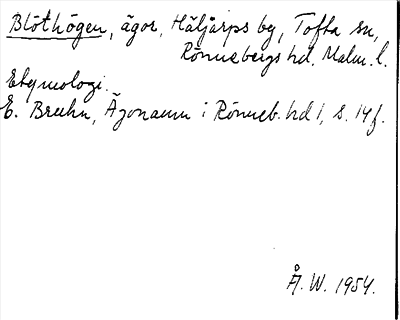 Blöthögen, ägor, Häljarps by, Tofta sn,
Rönnebergs hd. Malm. l.
Etymologi.
E. Bruhn, Ägonamn i Rönneb. hd 1, s. 14 f.
Å. W. 1954.